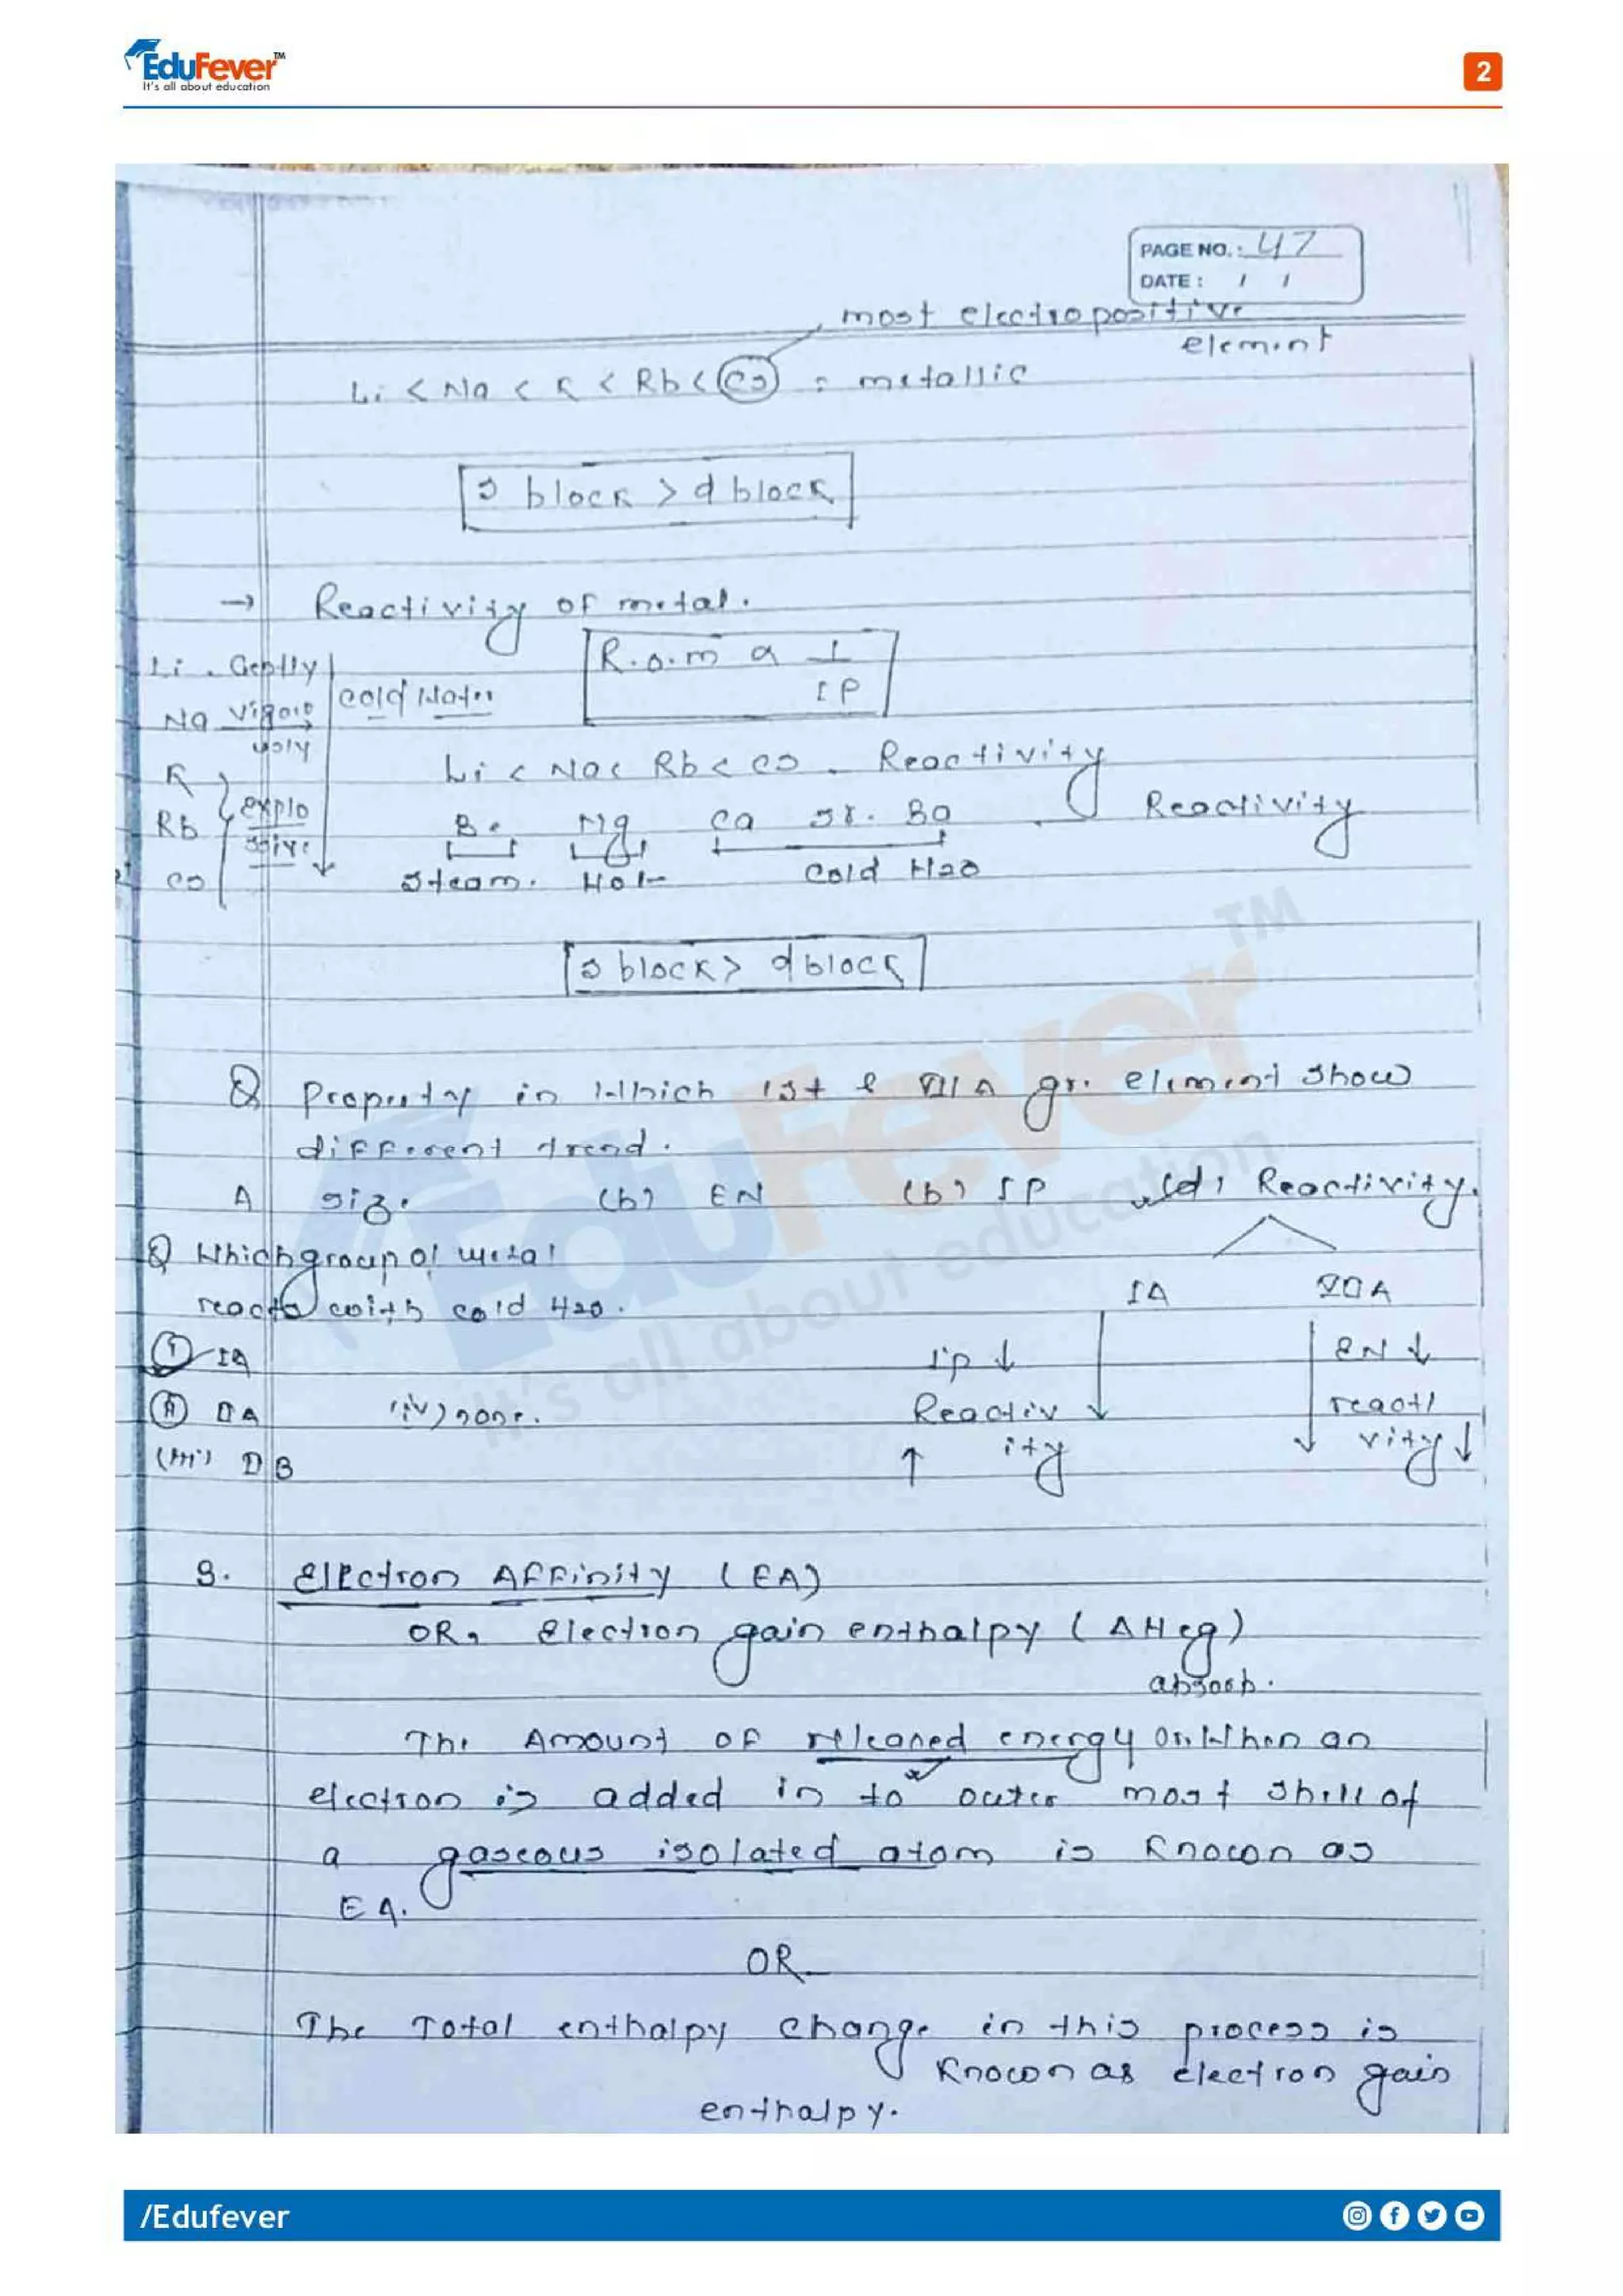 EduFever™
It's all about education
2
PAGE NO.: 47
DATE: / /
most electropositive
element
Li < Na < K < Rb < Cs : metallic
s block > d block
→ Reactivity of metal.
Li - Gently
Cold Water
R.o.m α 1
IP
Na Vigoro
usly
K
Li < Na < Rb < Cs - Reactivity
Rb explo
sive
Be Mg Ca Sr. Ba Reactivity
Cs
Steam. Hot Cold H2O
s block > d block
Q Property in Which 1st & VII A gr. element show
different trend.
A size (b) EN (b) IP (d) Reactivity.
Q Which group of metal
reacts with cold H2O.
IA VII A
(I) IA
Ip ↓
EN ↓
(II) II A (iv) none.
Reactiv
ity
↑
reacti
vity ↓
(iii) D B
9. Electron Affinity (EA)
OR, Electron gain enthalpy (ΔHeg)
absorb.
The Amount of released energy or When an
electron is added in to outer most shell of
a gaseous isolated atom is Known as
EA.
OR
The Total enthalpy change in this process is
Known as electron gain
enthalpy.
EduFever™
It's all about education
/Edufever